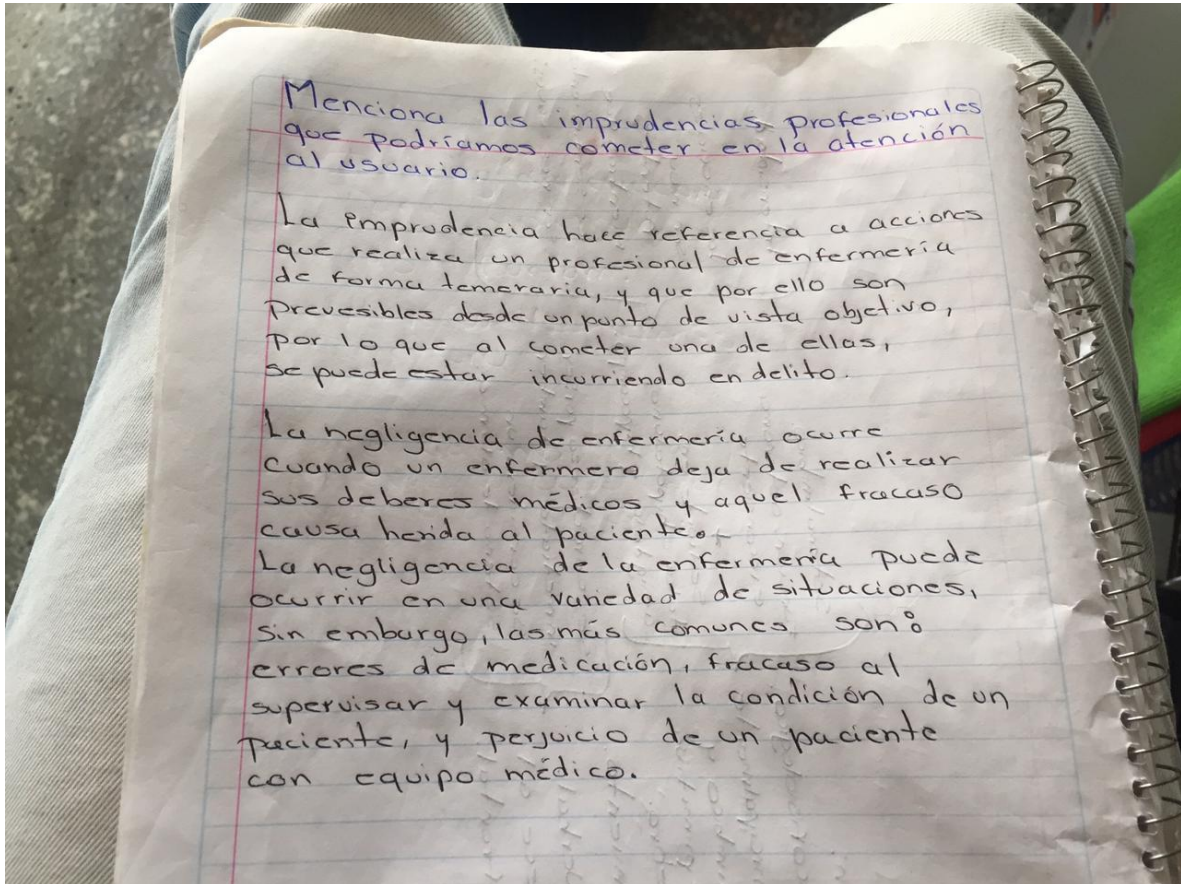 Menciona las imprudencias profesionales
que podríamos cometer en la atención
al usuario.
La imprudencia hace referencia a acciones
que realiza un profesional de enfermería
de forma temeraria, y que por ello son
prevesibles desde un punto de vista objetivo,
por lo que al cometer una de ellas,
se puede estar incurriendo en delito.
La negligencia de enfermería ocurre
cuando un enfermero deja de realizar
sus deberes médicos y aquel fracaso
causa herida al paciente.
La negligencia de la enfermería puede
ocurrir en una variedad de situaciones,
sin embargo, las más comunes son:
errores de medicación, fracaso al
supervisar y examinar la condición de un
paciente, y perjuicio de un paciente
con equipo médico.